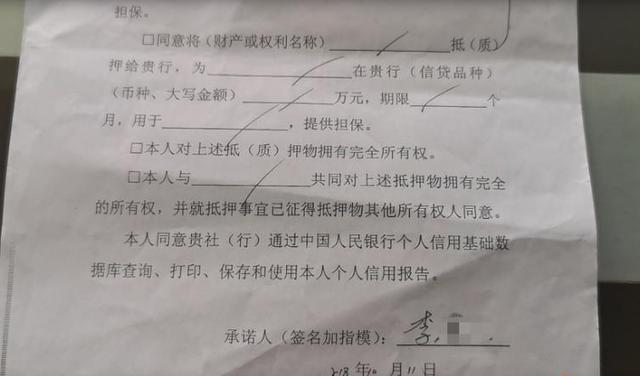 担保。
□同意将（财产或权利名称）____________抵（质）
押给贵行，为____________在贵行（信贷品种）
（币种、大写金额）________万元，期限______个
月，用于____________，提供担保。
□本人对上述抵（质）押物拥有完全所有权。
□本人与____________共同对上述抵押物拥有完全
的所有权，并就抵押事宜已征得抵押物其他所有权人同意。
本人同意贵社（行）通过中国人民银行个人信用基础数
据库查询、打印、保存和使用本人个人信用报告。
承诺人（签名加指模）：李
年10月11日